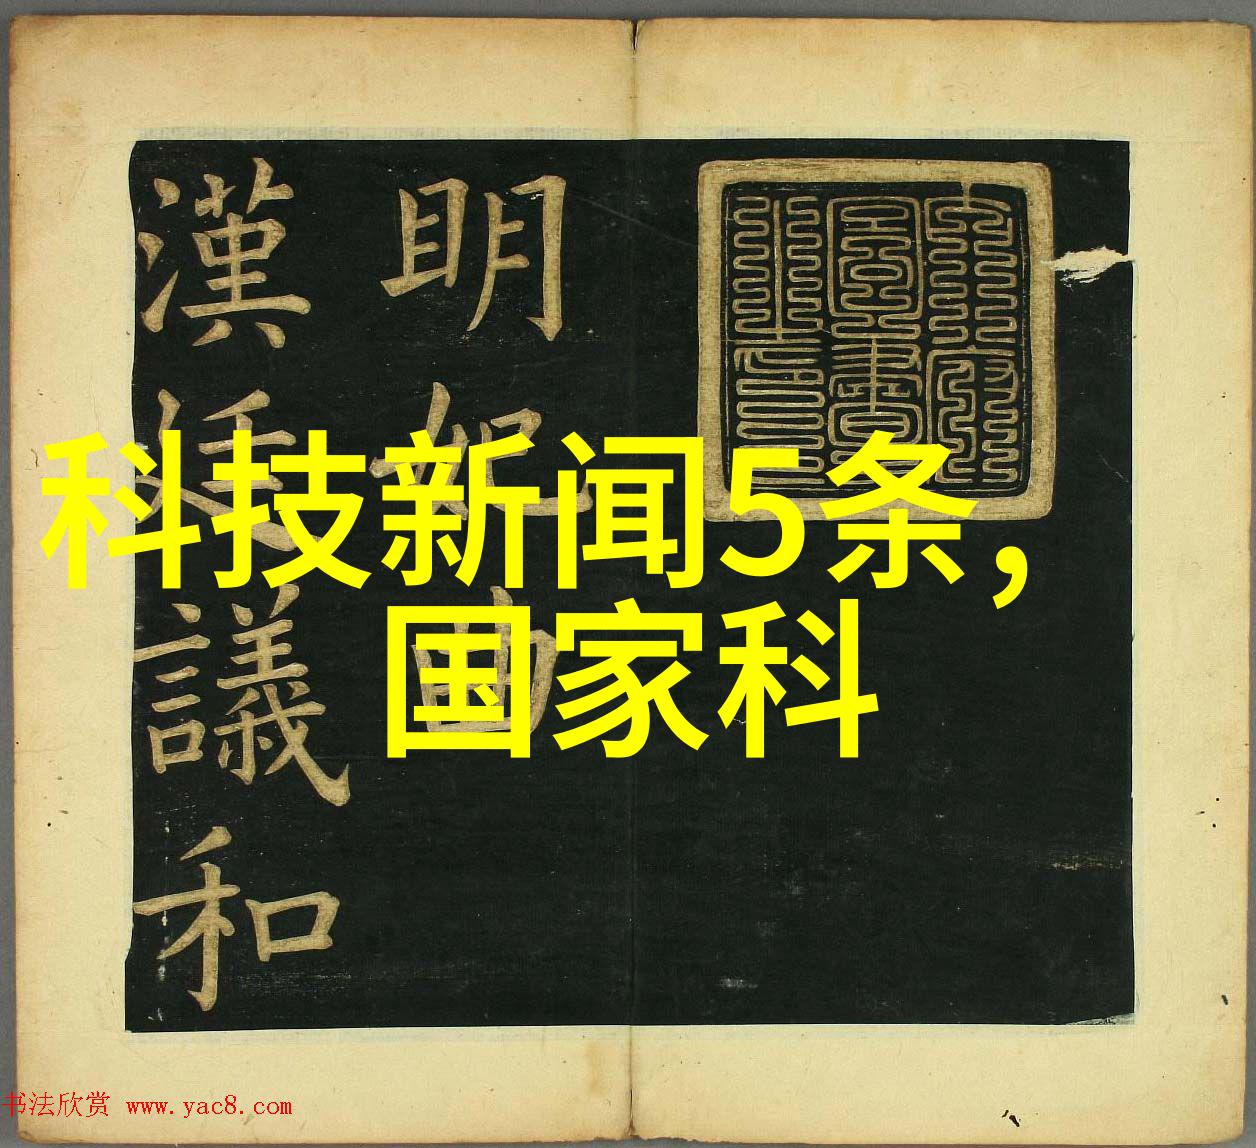 明妃曲
漢廷議和
科技新闻5条，
国家科
书法欣赏 www.yac8.com